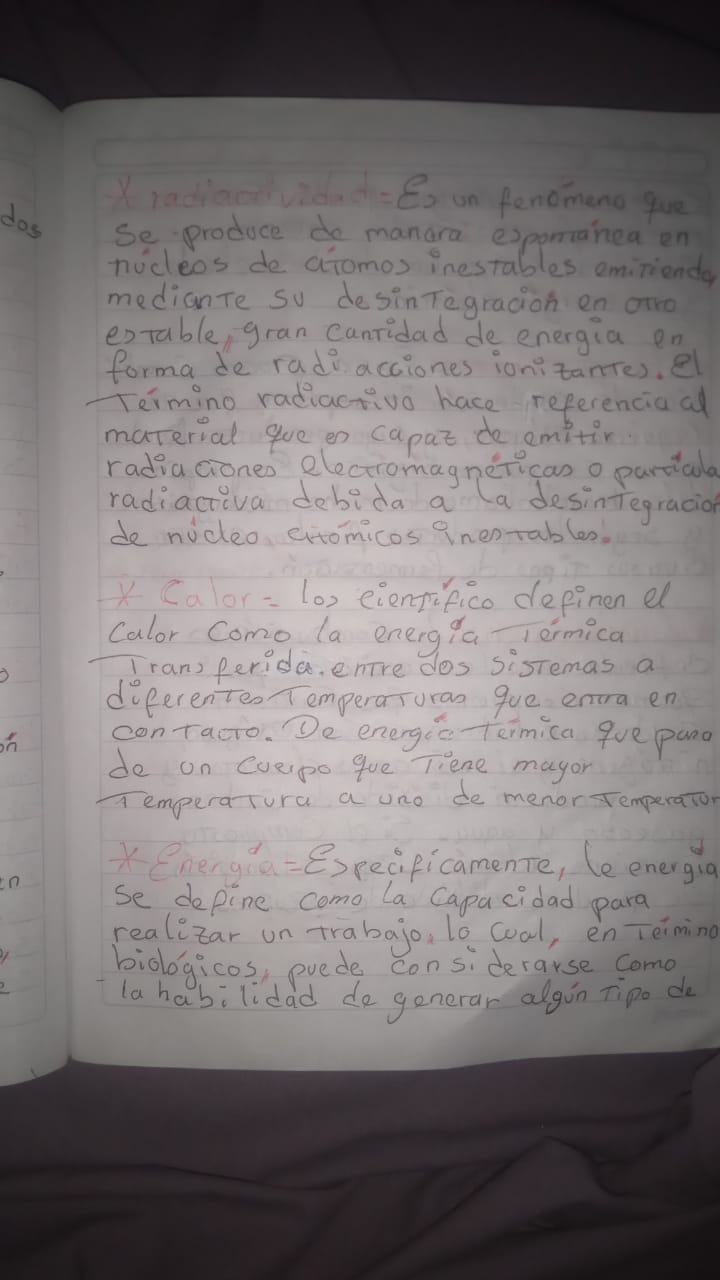 dos
* radiactividad = Es un fenómeno que
se produce de manara espomanea en
núcleos de átomos inestables emitiendo
mediante su desintegración en otro
estable, gran cantidad de energía en
forma de radi acciones ionizantes. El
Término radiactivo hace referencia al
material que es capaz de emitir
radiaciones electromagnéticas o partícula
radiactiva debida a la desintegracion
de núcleo atómicos inestables.
* Calor = los científico definen el
Calor Como la energía Térmica
Transferida. entre dos sistemas a
diferentes Temperaturas que entra en
contacto. De energía térmica que pasa
de un cuerpo que Tiene mayor
Temperatura a uno de menor Temperatur
* Energía = Específicamente, le energía
se define como la Capacidad para
realizar un trabajo, lo cual, en Término
biológicos, puede considerarse como
la habilidad de generar algún tipo de